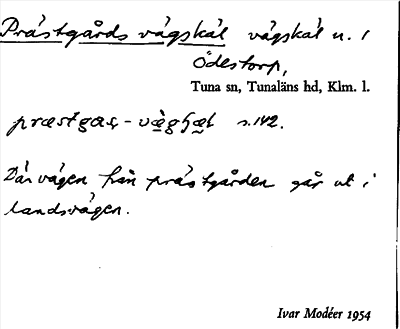 Prästgårds vägskäl vägskäl n. i
Ödestorp,
Tuna sn, Tunaläns hd, Klm. l.
s. 142.
Där vägen från prästgården går ut i
landsvägen.
Ivar Modéer 1954